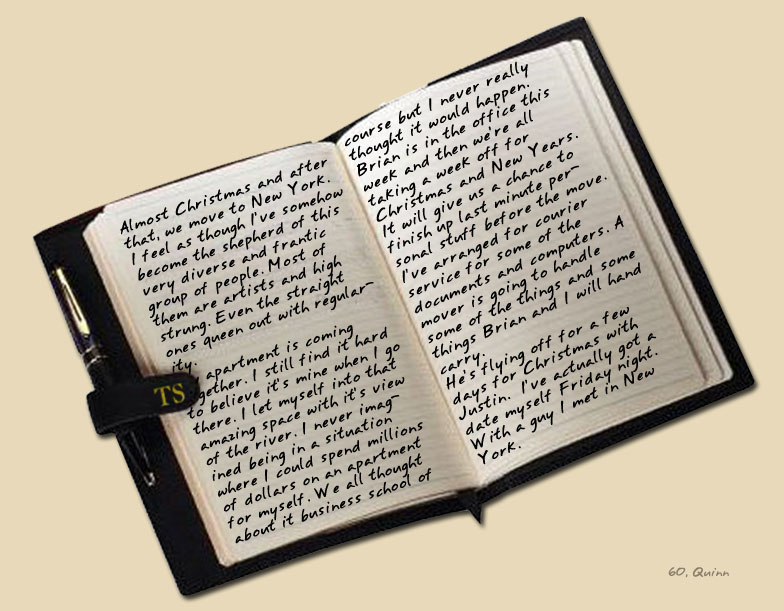 Almost Christmas and after
that, we move to New York.
I feel as though I've somehow
become the shepherd of this
very diverse and frantic
group of people. Most of
them are artists and high
strung. Even the straight
ones queen out with regular-
ity.
apartment is coming
gether. I still find it hard
to believe it's mine when I go
there. I let myself into that
amazing space with it's view
of the river. I never imag-
ined being in a situation
where I could spend millions
of dollars on an apartment
for myself. We all thought
about it business school of
course but I never really
thought it would happen.
Brian is in the office this
week and then we're all
taking a week off for
Christmas and New Years.
It will give us a chance to
finish up last minute per-
sonal stuff before the move.
I've arranged for courier
service for some of the
documents and computers. A
mover is going to handle
some of the things and some
things Brian and I will hand
carry.
He's flying off for a few
days for Christmas with
Justin. I've actually got a
date myself Friday night.
With a guy I met in New
York.
TS
60, Quinn